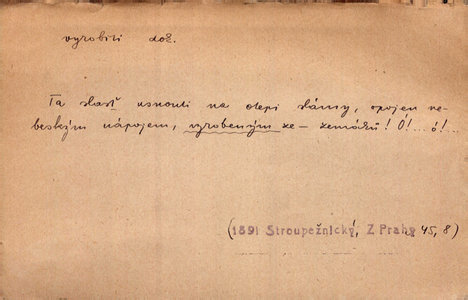 vyrobiti dok.
Ta slast usnouti na otepi slámy, opojen ne-
beským nápojem, vyrobeným ze – zemáků! Ó!...ó!...
(1891 Stroupežnický, Z Prahy 45, 8)